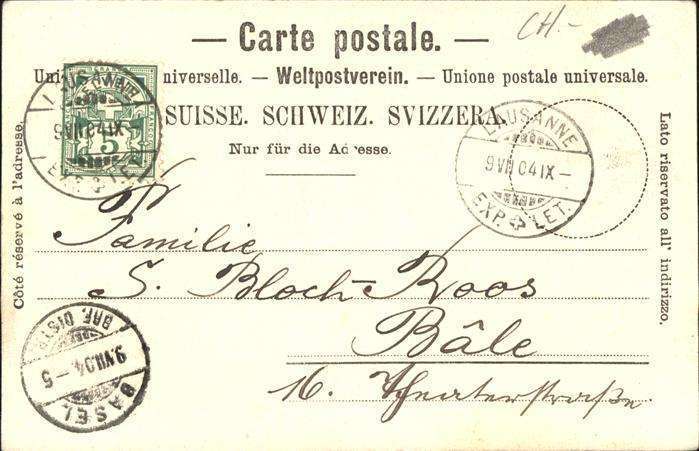 CH.-
— Carte postale. —
Uni niverselle. — Weltpostverein. — Unione postale universale.
SUISSE. SCHWEIZ. SVIZZERA.
Nur für die Ad esse.
Côté réservé à l'adresse.
Lato riservato all' indirizzo.
5
LAUSANNE
9 VII 04 IX
EXP. LET.
LAUSANNE
9 VII 04 IX –
EXP. LET.
Familie
S. Bloch-Roos
Bâle
16. Theaterstraße.
BRF. DISTR.
9. VII. 04. – 5
BASEL